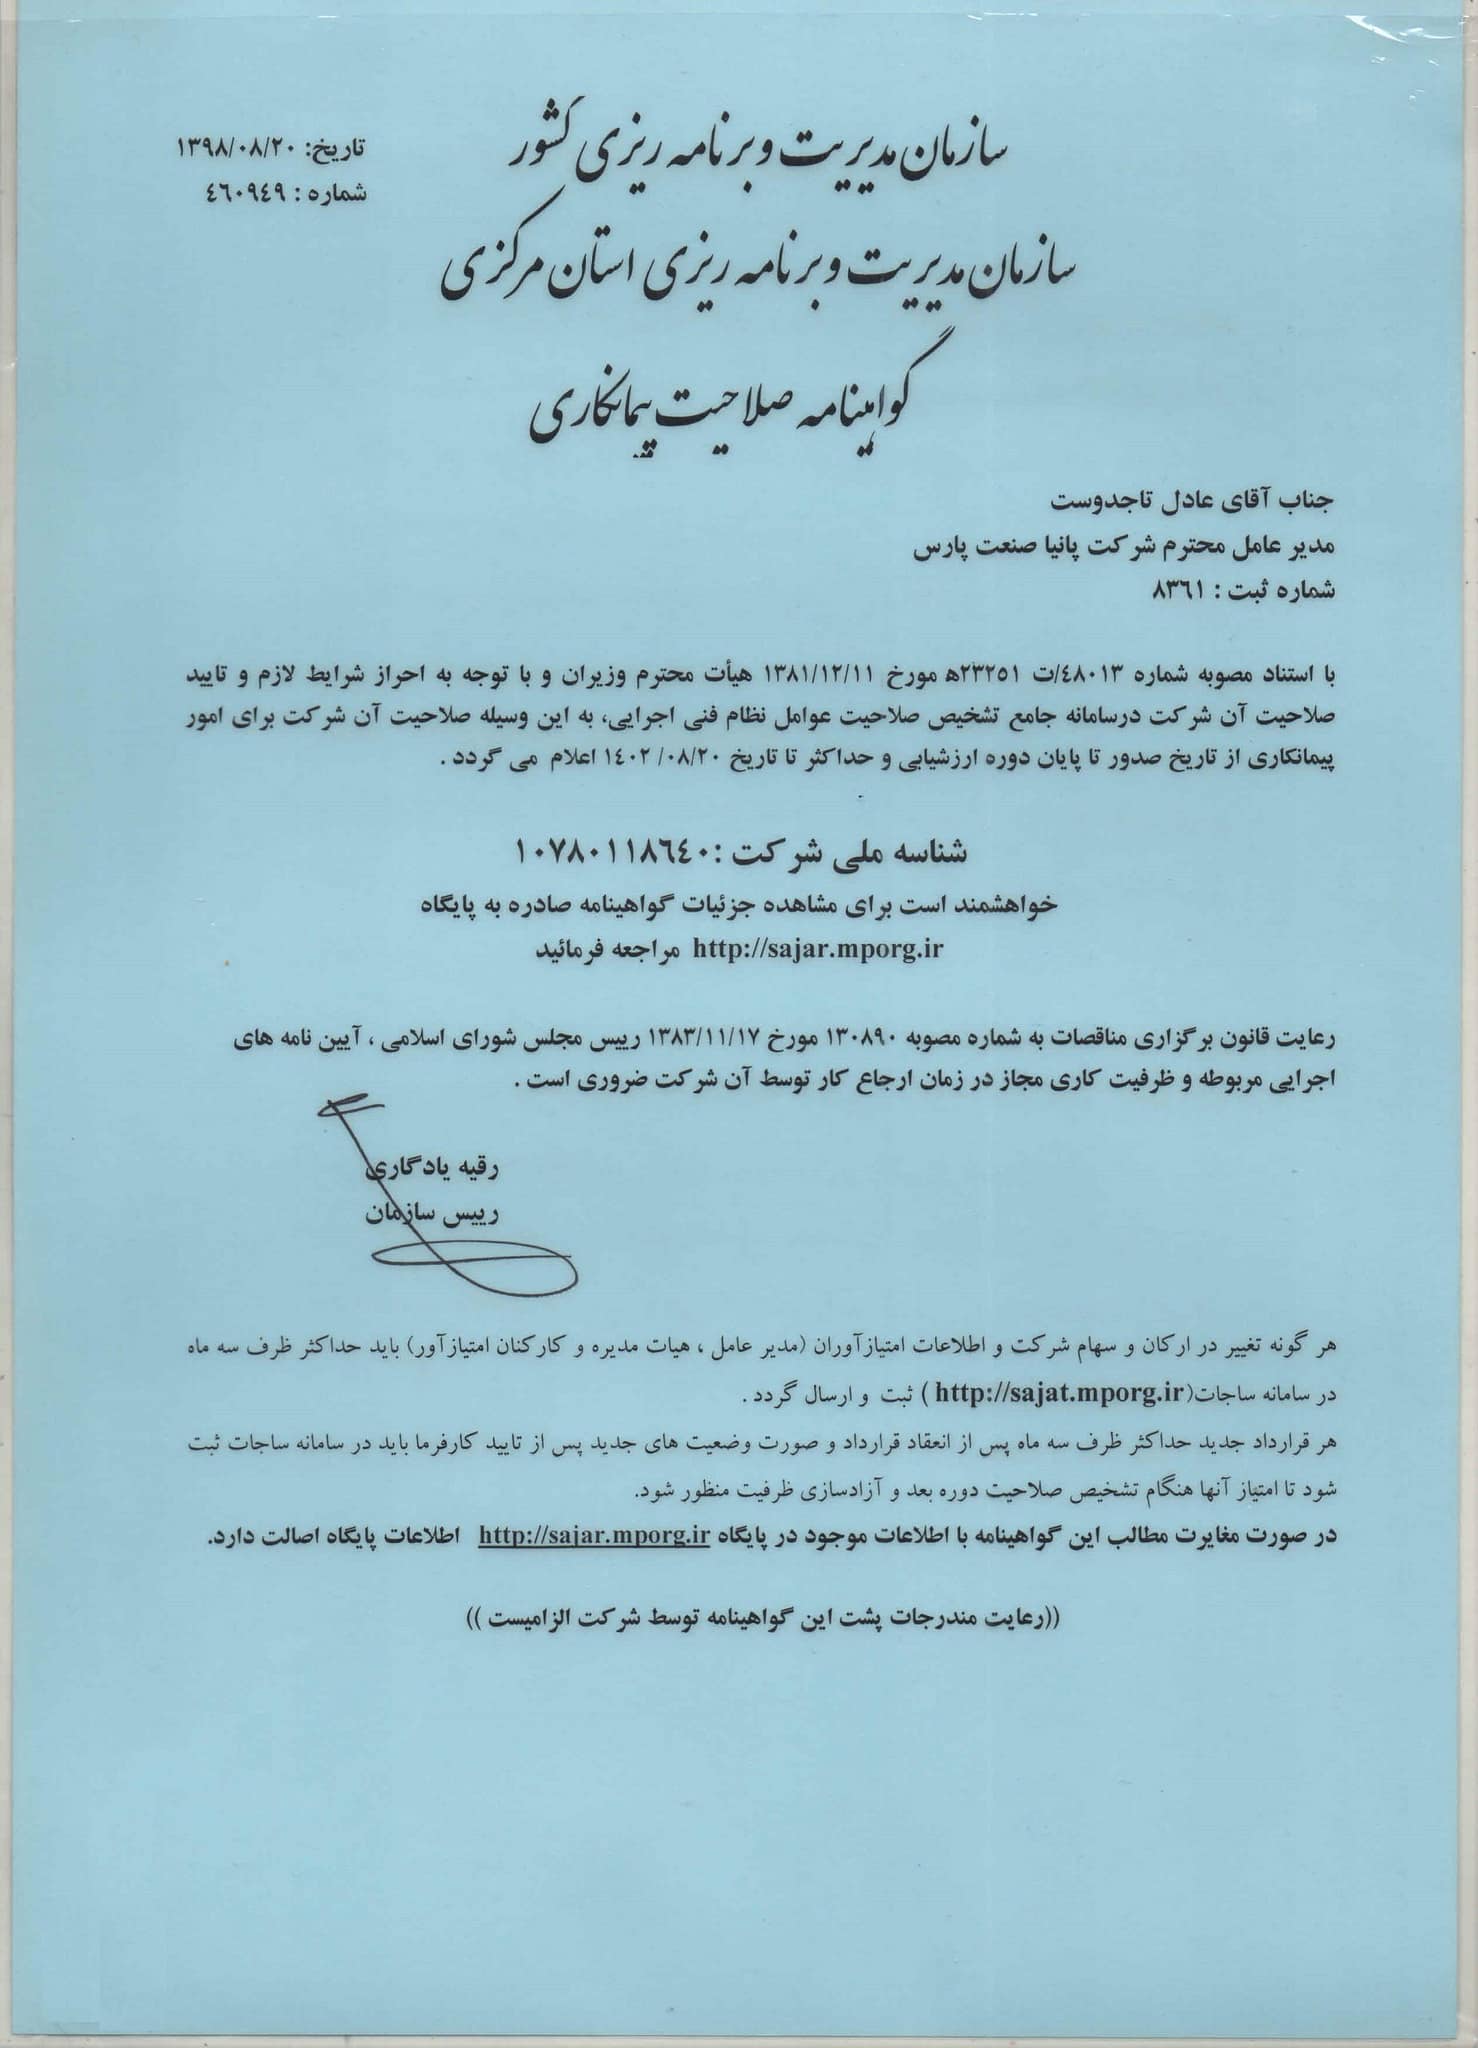 سازمان مدیریت و برنامه ریزی کشور
تاریخ: ١٣٩٨/٠٨/٢٠
شماره : ٤٦٠٩٤٩
سازمان مدیریت و برنامه ریزی استان مرکزی
گواهینامه صلاحیت پیمانکاری
جناب آقای عادل تاجدوست
مدیر عامل محترم شرکت پانیا صنعت پارس
شماره ثبت : ٨٣٦١
با استناد مصوبه شماره ٤٨٠١٣/ت ٢٣٢٥١ه مورخ ١٣٨١/١٢/١١ هیأت محترم وزیران و با توجه به احراز شرایط لازم و تایید
صلاحیت آن شرکت درسامانه جامع تشخیص صلاحیت عوامل نظام فنی اجرایی، به این وسیله صلاحیت آن شرکت برای امور
پیمانکاری از تاریخ صدور تا پایان دوره ارزشیابی و حداکثر تا تاریخ ١٤٠٢/٠٨/٢٠ اعلام می گردد .
شناسه ملی شرکت :١٠٧٨٠١١٨٦٤٠
خواهشمند است برای مشاهده جزئیات گواهینامه صادره به پایگاه
http://sajar.mporg.ir مراجعه فرمائید
رعایت قانون برگزاری مناقصات به شماره مصوبه ١٣٠٨٩٠ مورخ ١٣٨٣/١١/١٧ رییس مجلس شورای اسلامی ، آیین نامه های
اجرایی مربوطه و ظرفیت کاری مجاز در زمان ارجاع کار توسط آن شرکت ضروری است .
رقیه یادگاری
رییس سازمان
هر گونه تغییر در ارکان و سهام شرکت و اطلاعات امتیازآوران (مدیر عامل ، هیات مدیره و کارکنان امتیازآور) باید حداکثر ظرف سه ماه
در سامانه ساجات(http://sajat.mporg.ir ) ثبت و ارسال گردد .
هر قرارداد جدید حداکثر ظرف سه ماه پس از انعقاد قرارداد و صورت وضعیت های جدید پس از تایید کارفرما باید در سامانه ساجات ثبت
شود تا امتیاز آنها هنگام تشخیص صلاحیت دوره بعد و آزادسازی ظرفیت منظور شود.
در صورت مغایرت مطالب این گواهینامه با اطلاعات موجود در پایگاه http://sajar.mporg.ir اطلاعات پایگاه اصالت دارد.
((رعایت مندرجات پشت این گواهینامه توسط شرکت الزامیست ))